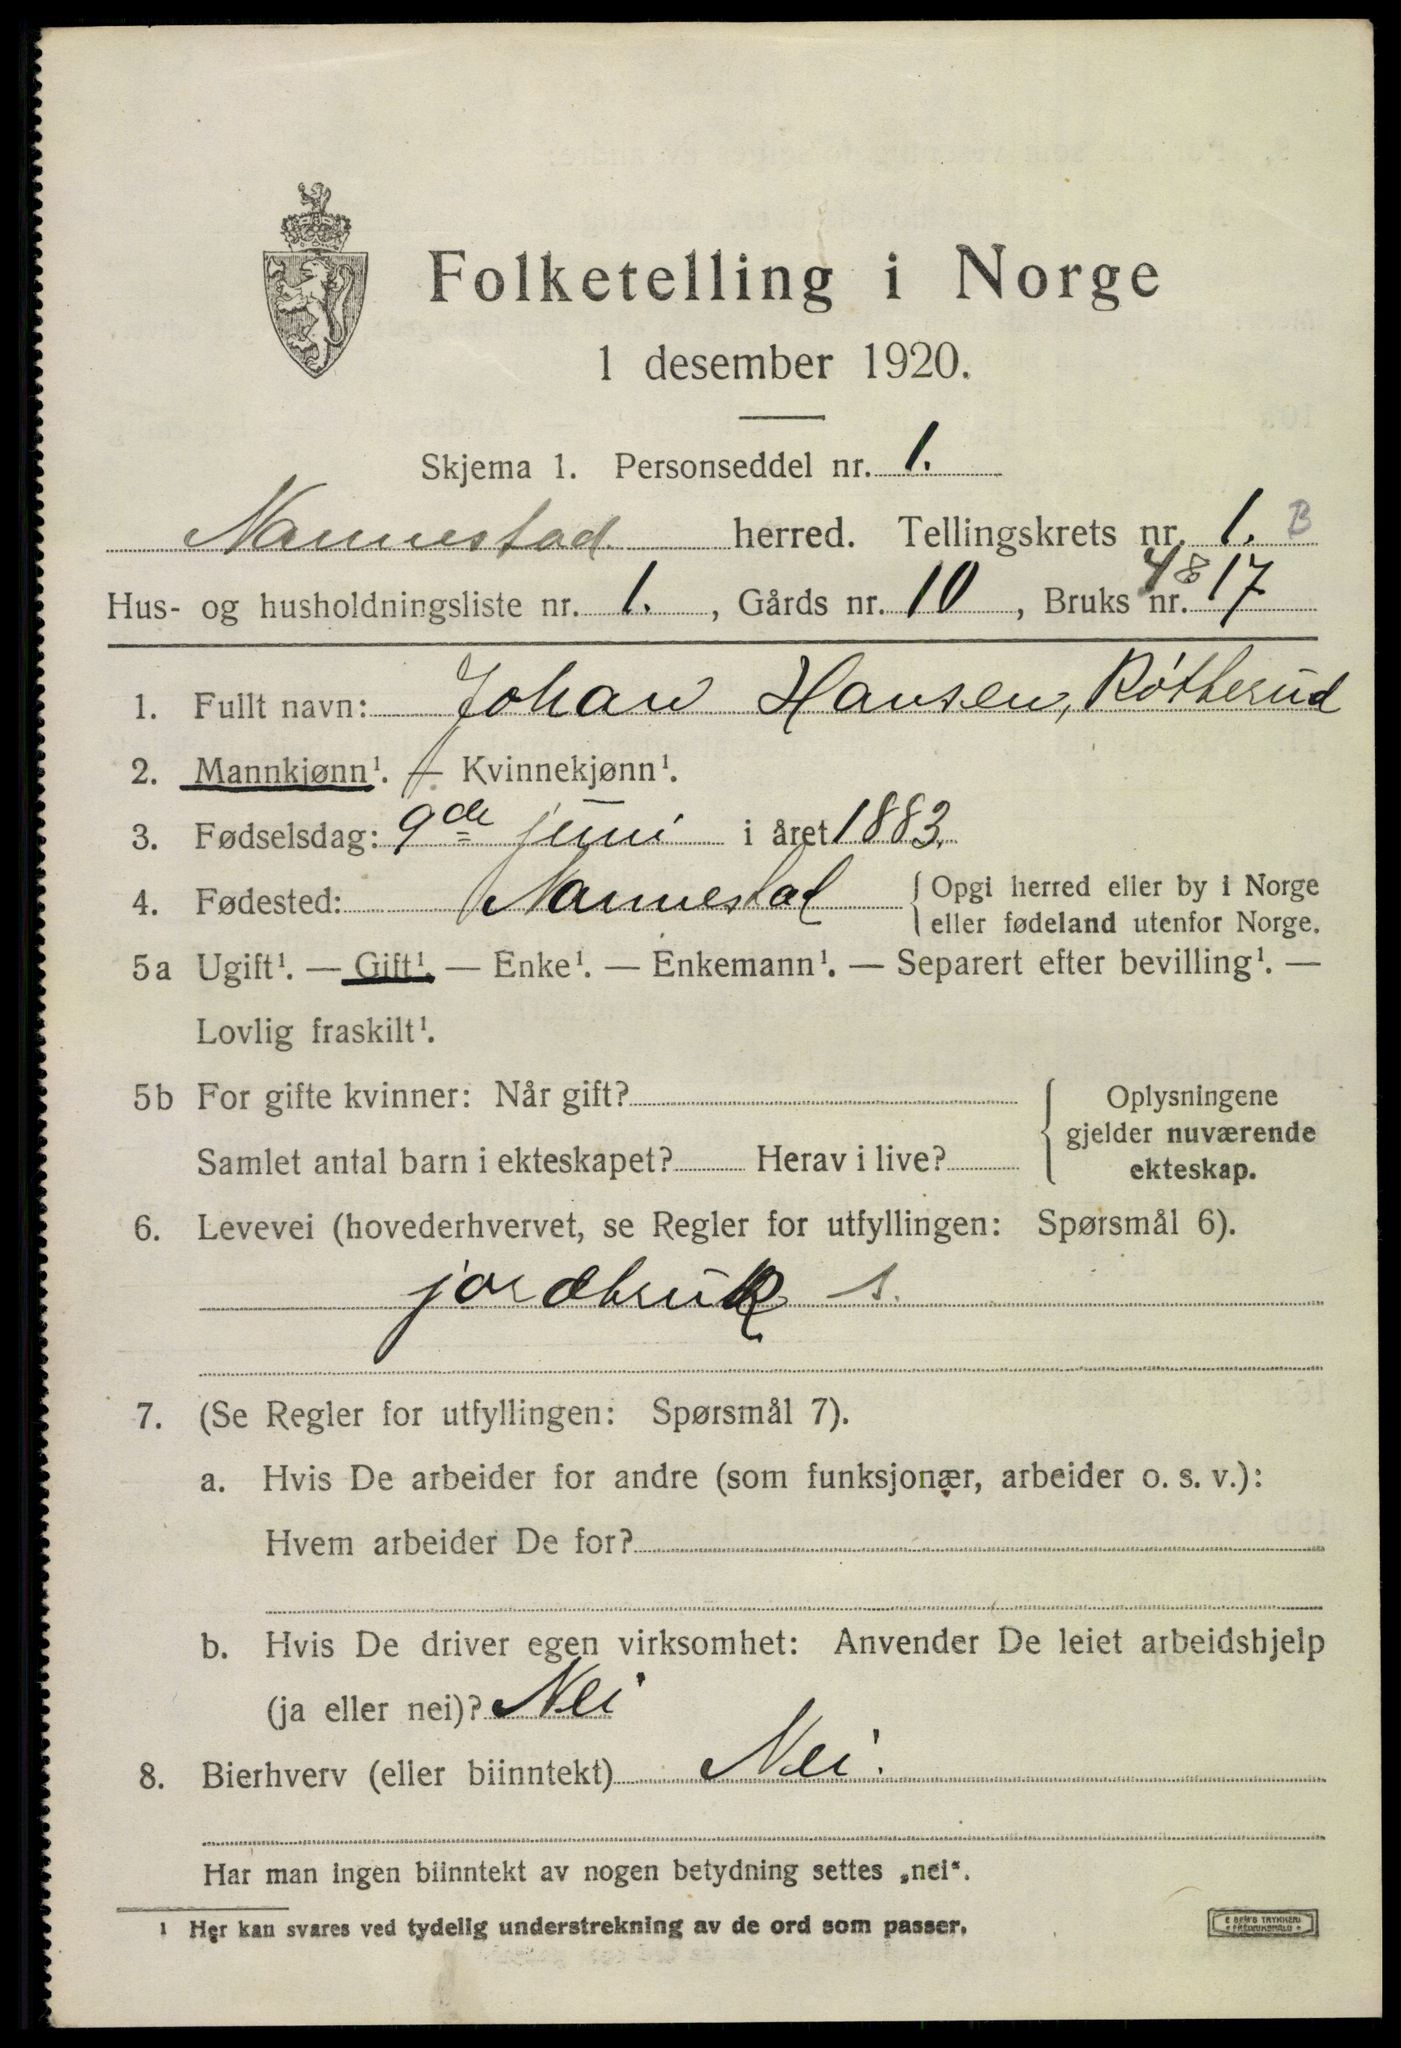 Folketelling i Norge
1 desember 1920.
Skjema 1. Personseddel nr. 1.
Nannestad herred. Tellingskrets nr. 1. B
Hus- og husholdningsliste nr. 1., Gårds nr. 10, Bruks nr. 48 17
1. Fullt navn: Johan Hansen, Røtterud
2. Mannkjønn¹. — Kvinnekjønn¹.
3. Fødselsdag: 9de juni i året 1883.
4. Fødested: Nannestad { Opgi herred eller by i Norge
eller fødeland utenfor Norge.
5a Ugift¹. — Gift¹. — Enke¹. — Enkemann¹. — Separert efter bevilling¹. —
Lovlig fraskilt¹.
5b For gifte kvinner: Når gift?
Samlet antal barn i ekteskapet? Herav i live?
Oplysningene
gjelder nuværende
ekteskap.
6. Levevei (hovederhvervet, se Regler for utfyllingen: Spørsmål 6).
jordbruk s.
7. (Se Regler for utfyllingen: Spørsmål 7).
a. Hvis De arbeider for andre (som funksjonær, arbeider o. s. v.):
Hvem arbeider De for?
b. Hvis De driver egen virksomhet: Anvender De leiet arbeidshjelp
(ja eller nei)? Nei
8. Bierhverv (eller biinntekt) Nei.
Har man ingen biinntekt av nogen betydning settes „nei“.
¹ Her kan svares ved tydelig understrekning av de ord som passer.